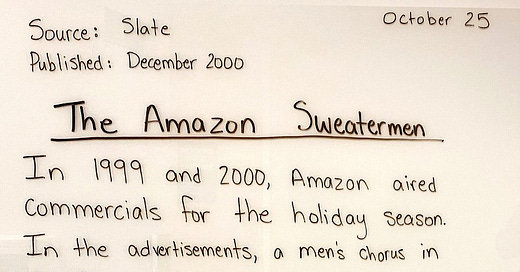 October 25
Source: Slate
Published: December 2000
The Amazon Sweatermen
In 1999 and 2000, Amazon aired
commercials for the holiday season.
In the advertisements, a men's chorus in